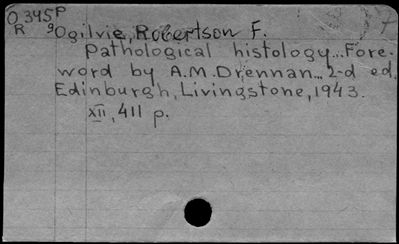 O 345P
R 9Ogilvie, Robertson F.
Pathological histology... Fore-
word by A.M. Drennan... 2-d ed.
Edinburgh, Livingstone, 1943.
XII, 411 p.